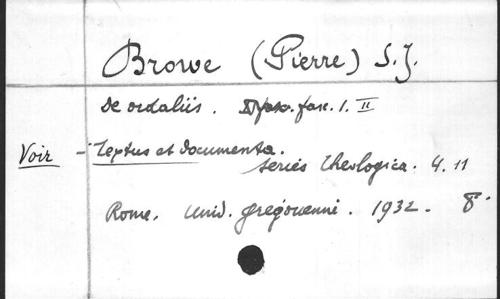 Browe (Pierre) S.J.
De ordaliis. fasc. 1. II
Voir - Textus et documenta.
series theologica. 4. 11
Rome. Univ. grégorienne. 1932. 8°